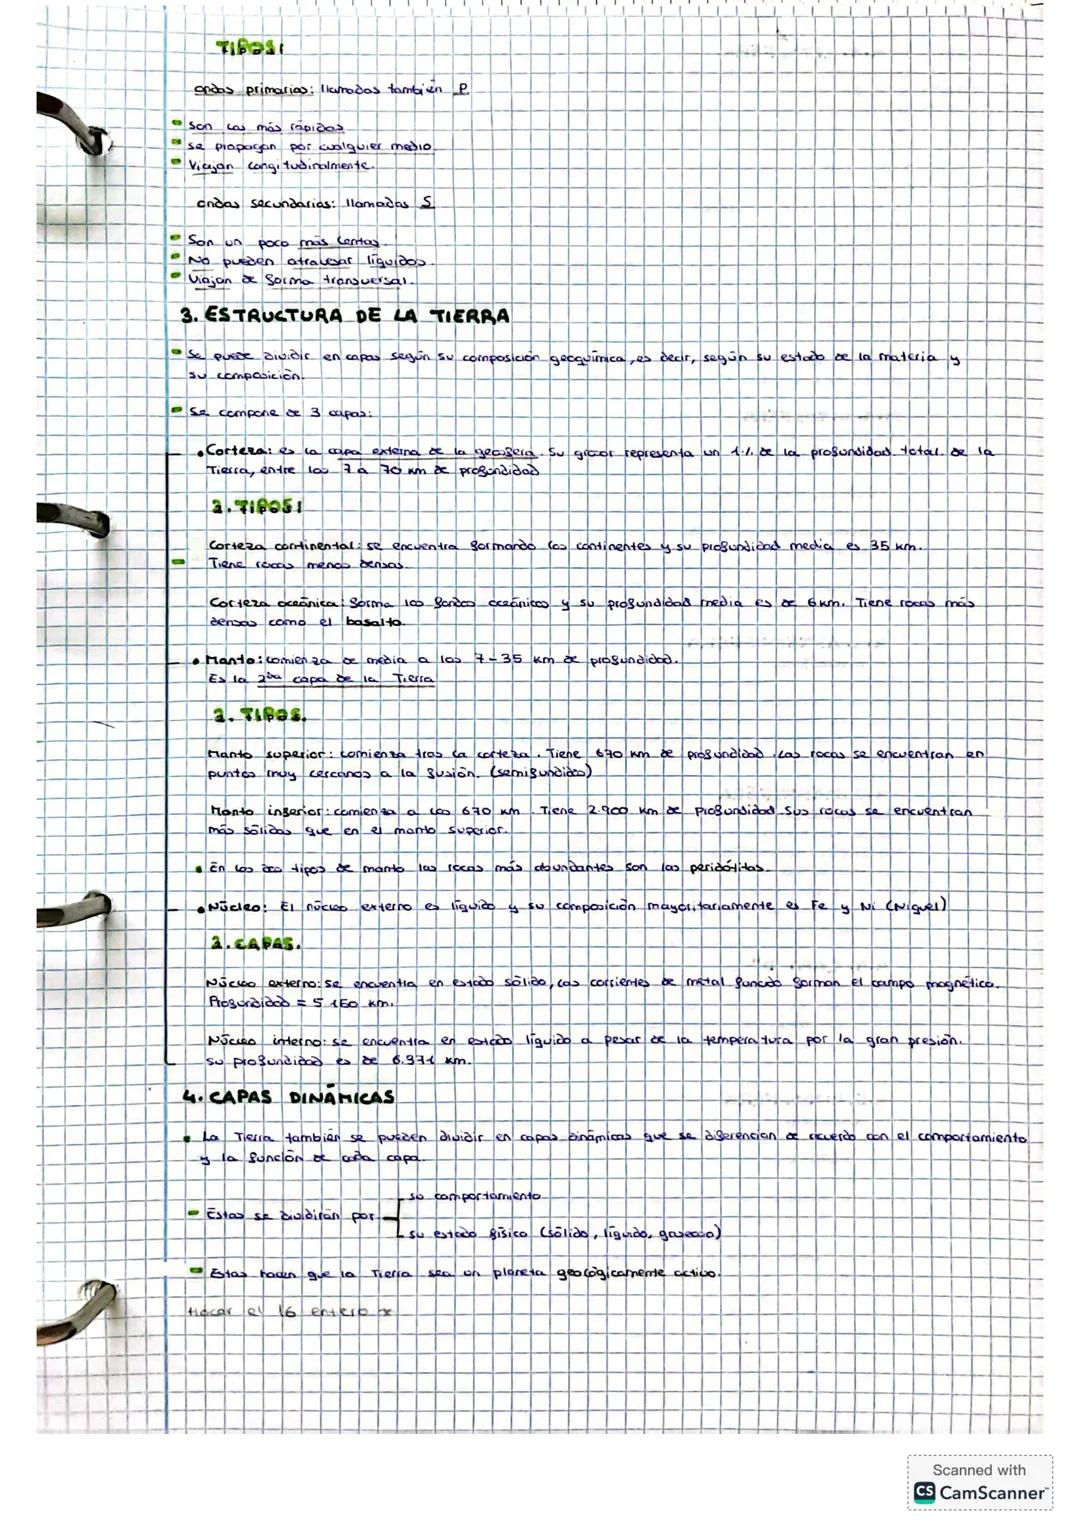 TIPOS:
ondas primarias: llamadas también P.
Son las más rápidas
Se propagan por cualquier medio
Viajan longitudinalmente.
ondas secundarias: llamadas S
Son un poco más lentas.
No pueden atravesar líquidos.
Viajan de forma transversal.
3. ESTRUCTURA DE LA TIERRA
Se puede dividir en capas según su composición geoquímica, es decir, según su estado de la materia y
su composición.
Se compone de 3 capas:
Corteza: es la capa externa de la geosfera. Su grosor representa un 1% de la profundidad total de la
Tierra, entre los 7 a 70 km de profundidad
2. TIPOS:
Corteza continental: se encuentra formando los continentes y su profundidad media es 35 km.
Tiene rocas menos densas.
Corteza oceánica: forma los fondos oceánicos y su profundidad media es de 6 km. Tiene rocas más
densas como el basalto.
Manto: comienza de media a los 7-35 km de profundidad.
Es la 2da capa de la Tierra
2. TIPOS.
Manto superior: comienza tras la corteza. Tiene 670 km de profundidad. Las rocas se encuentran en
puntos muy cercanos a la fusión. (semifundidos)
Manto inferior: comienza a los 670 km. Tiene 2.900 km de profundidad. Sus rocas se encuentran
más sólidas que en el manto superior.
En los dos tipos de manto las rocas más abundantes son las peridótitas.
Núcleo: El núcleo externo es líquido y su composición mayoritariamente es Fe y Ni (Niquel)
2. CAPAS.
Núcleo externo: se encuentra en estado sólido, las corrientes de metal fundido forman el campo magnético.
Profundidad = 5 150 km.
Núcleo interno: se encuentra en estado líquido a pesar de la temperatura por la gran presión.
su profundidad es de 6.371 km.
4. CAPAS DINÁMICAS
La Tierra también se pueden dividir en capas dinámicas que se diferencian de acuerdo con el comportamiento
y la función de cada capa.
su comportamiento
Estas se dividirán por
su estado físico (sólido, líquido, gaseoso)
Estas hacen que la Tierra sea un planeta geológicamente activo.
Hacer el 16 entero *
Scanned with
CS CamScanner